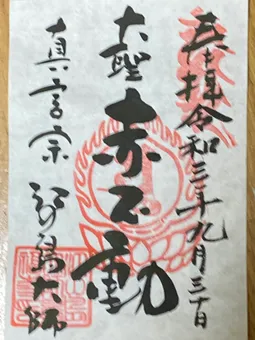 奉拝 令和三年九月三十日
大聖 赤不動
真言宗 大師